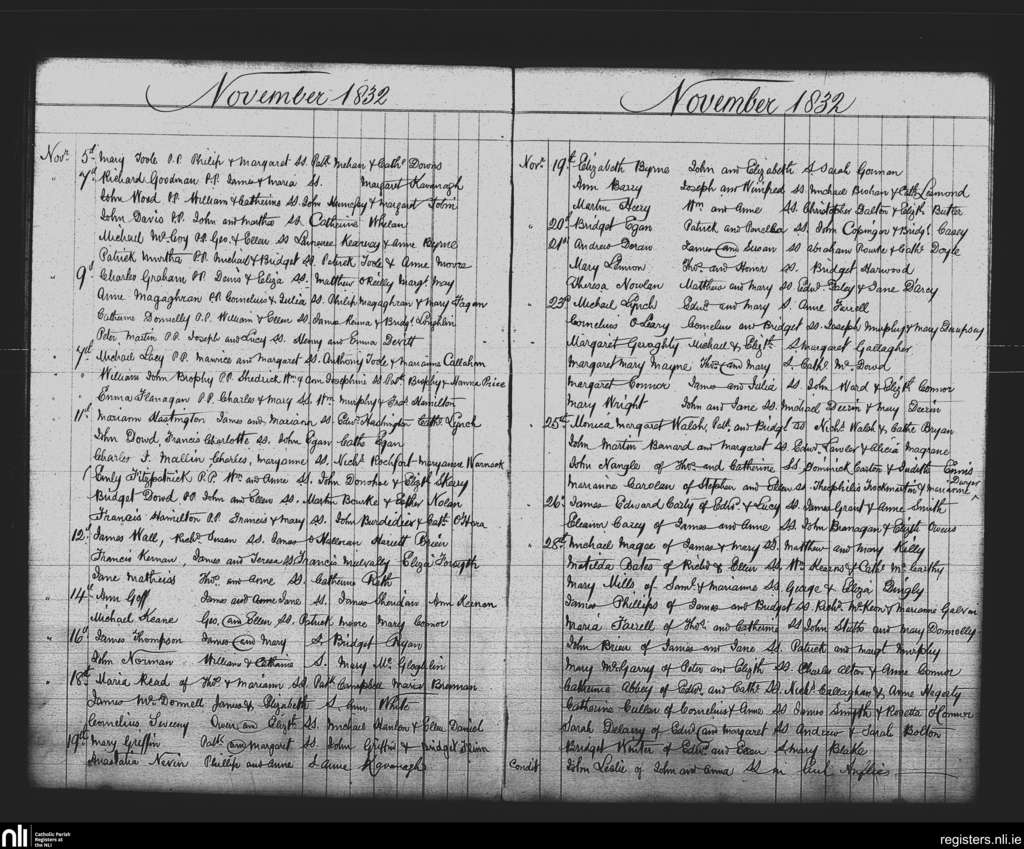 November 1832
Novr. 5d. Mary Toole P.P. Philip & Margaret SS. Patk. Mehan & Cathe. Downs
" 7d Richard Goodman P.P. James & Maria SS. Margaret Kavanagh
John Wood P.P. William & Catherine SS. John Humphry & Margaret Tobin
John Davis P.P. John and Martha SS. Catherine Whelan
Michael McCoy P.P. Geo. & Ellen SS Laurence Kearney & Anne Byrne
Patrick Murtha P.P. Michael & Bridget SS. Patrick Toole & Anne Moore
" 9d Charles Graham P.P. Denis & Eliza SS. Matthew O'Reilly Margt. May
Anne Magaghran P.P. Cornelius & Julia SS. Philip Magaghran & Mary Fagan
Catherine Donnelly P.P. William & Ellen SS. James & Bridgt. Loughlin
Peter Martin P.P. Joseph and Lucy SS. Henry and Emma Devitt
" 7d Michael Lacy P.P. Maurice and Margaret SS. Anthony Toole & Marianne Callahan
" William John Brophy P.P. Wm. & Ann Josephine SS Patk. Brophy & Hanna Price
" Emma Flanagan P.P. Charles & Mary SS. Wm. Murphy & Hamilton
11d Mariann Hastington James and Mariann SS. Edwd. Cathe. Lynch
John Dowd Francis Charlotte SS. John Egan Cathe Egan
Charles F. Mallin Charles, Maryanne SS. Nichs. Rochfort Maryanne Warnock
Emily Fitzpatrick P.P. Wm. and Anne SS. John Donohoe & Elizth. Skerry
Bridget Dowd P.P. John and Ellen SS. Martin Bourke & Esther Nolan
Francis Hamilton P.P. Francis & Mary SS. John & Cathe. O'Hara
12d James Wall, Richd. Susan SS. James O'Halloran Harriett Brien
Francis Kernan, James and Teresa SS Francis Eliza Forsyth
Jane Mathews Thos. and Anne SS. Catherine Rath
" 14th Ann Goff James and Jane SS. James Sheridan Ann Kernan
Michael Keane Geo. and Ellen SS. Patrick Moore Mary Connor
" 16d James Thompson James and Mary S. Bridget Ryan
John Norman William & Catherine S. Mary McGloghlin
" 18th Maria Read of Thos. & Mariann SS. Patk. Campbell Maria Brennan
James McDonnell James & Elizabeth S Ann White
Cornelius Sweeny Owen and Elizth. SS. Michael Hanlon & Ellen Daniel
19th Mary Griffin Patk. and Margaret SS. John Griffin & Bridget Flinn
Anastatia Nevin Phillip and Anne S Anne Kavanagh
November 1832
Novr. 19th. Elizabeth Byrne John and Elizabeth S Sarah Gorman
Ann Barry Joseph and Winifred SS Michael Brohan & Cathe. Lesmond
Martin Heery Wm and Anne SS. Christopher Dalton & Elizth Butler
" 20d Bridget Egan Patrick and SS. John Copinger & Bridgt. Casey
" 21st Andrew Doran James and Susan SS Abraham Rourke & Cathe. Doyle
Mary Lennon Thos. and Honor SS. Bridget Harwood
Theresa Nowlan Matthew and Mary SS Edwd. Foley & Jane Darcy
" 23d Michael Lynch Edwd and Mary S. Anne Farrell
Cornelius O'Leary Cornelius and Bridget SS. Joseph Murphy & Mary Dempsey
Margaret Geraghty Michael & Elizth. S Margaret Gallagher
Margaret Mary Mayne Thos. and Mary S. Cathe. McDavid
Margaret Connor James and Julia SS. John Ward & Elizth Connor
Mary Wright John and Jane SS. Michael Deerin & Mary Deerin
" 25th Monica Margaret Walsh, Patk. and Bridgt. SS Nichs. Walsh & Cathe Bryan
John Martin Banard and Margaret SS. Edwd. Lawler & Alicia Magrane
John Nangles of Thos. and Catherine SS. Dominick Easton & Judith Ennis
Marianne Carolan of Stephen and Ellen SS. Theophilis & Marianne Dwyer
" 26th James Edward Carty of Edwd. & Lucy SS. James Grant & Anne Smith
Eleanor Carey of James and Anne SS John Branagan & Elizth Owens
" 28th Michael Magee of James & Mary SS. Matthew and Mary Kelly
Matilda Bates of Richd & Ellen SS. Wm. Kearns & Cathe McCarthy
Mary Mills of Saml. & Marianne SS Geoage & Eliza Bingly
James Phillips of James and Bridget SS. Richd. McKeon & Marianne Galvin
Maria Farrell of Thos. and Catherine SS John Stubbs and Mary Donnolly
John Brien of James and Jane SS. Patrick and Margt Murphy
Mary McGarry of Peter and Elizth SS. Charles Alton & Anne Connor
Catherine Abbey of Edwd. and Cathe. SS. Nichs. Callaghan & Anne Hegerty
Catherine Cullen of Cornelius & Anne SS James Smyth & Rosetta O'Connor
Sarah Delany of Edwd and Margaret SS Andrew & Sarah Bolton
Bridget Winter of Edwd. and Ellen S Mary Blake
Condit. John Leslie of John and Anna SS
nli Catholic Parish Registers at the NLI
registers.nli.ie